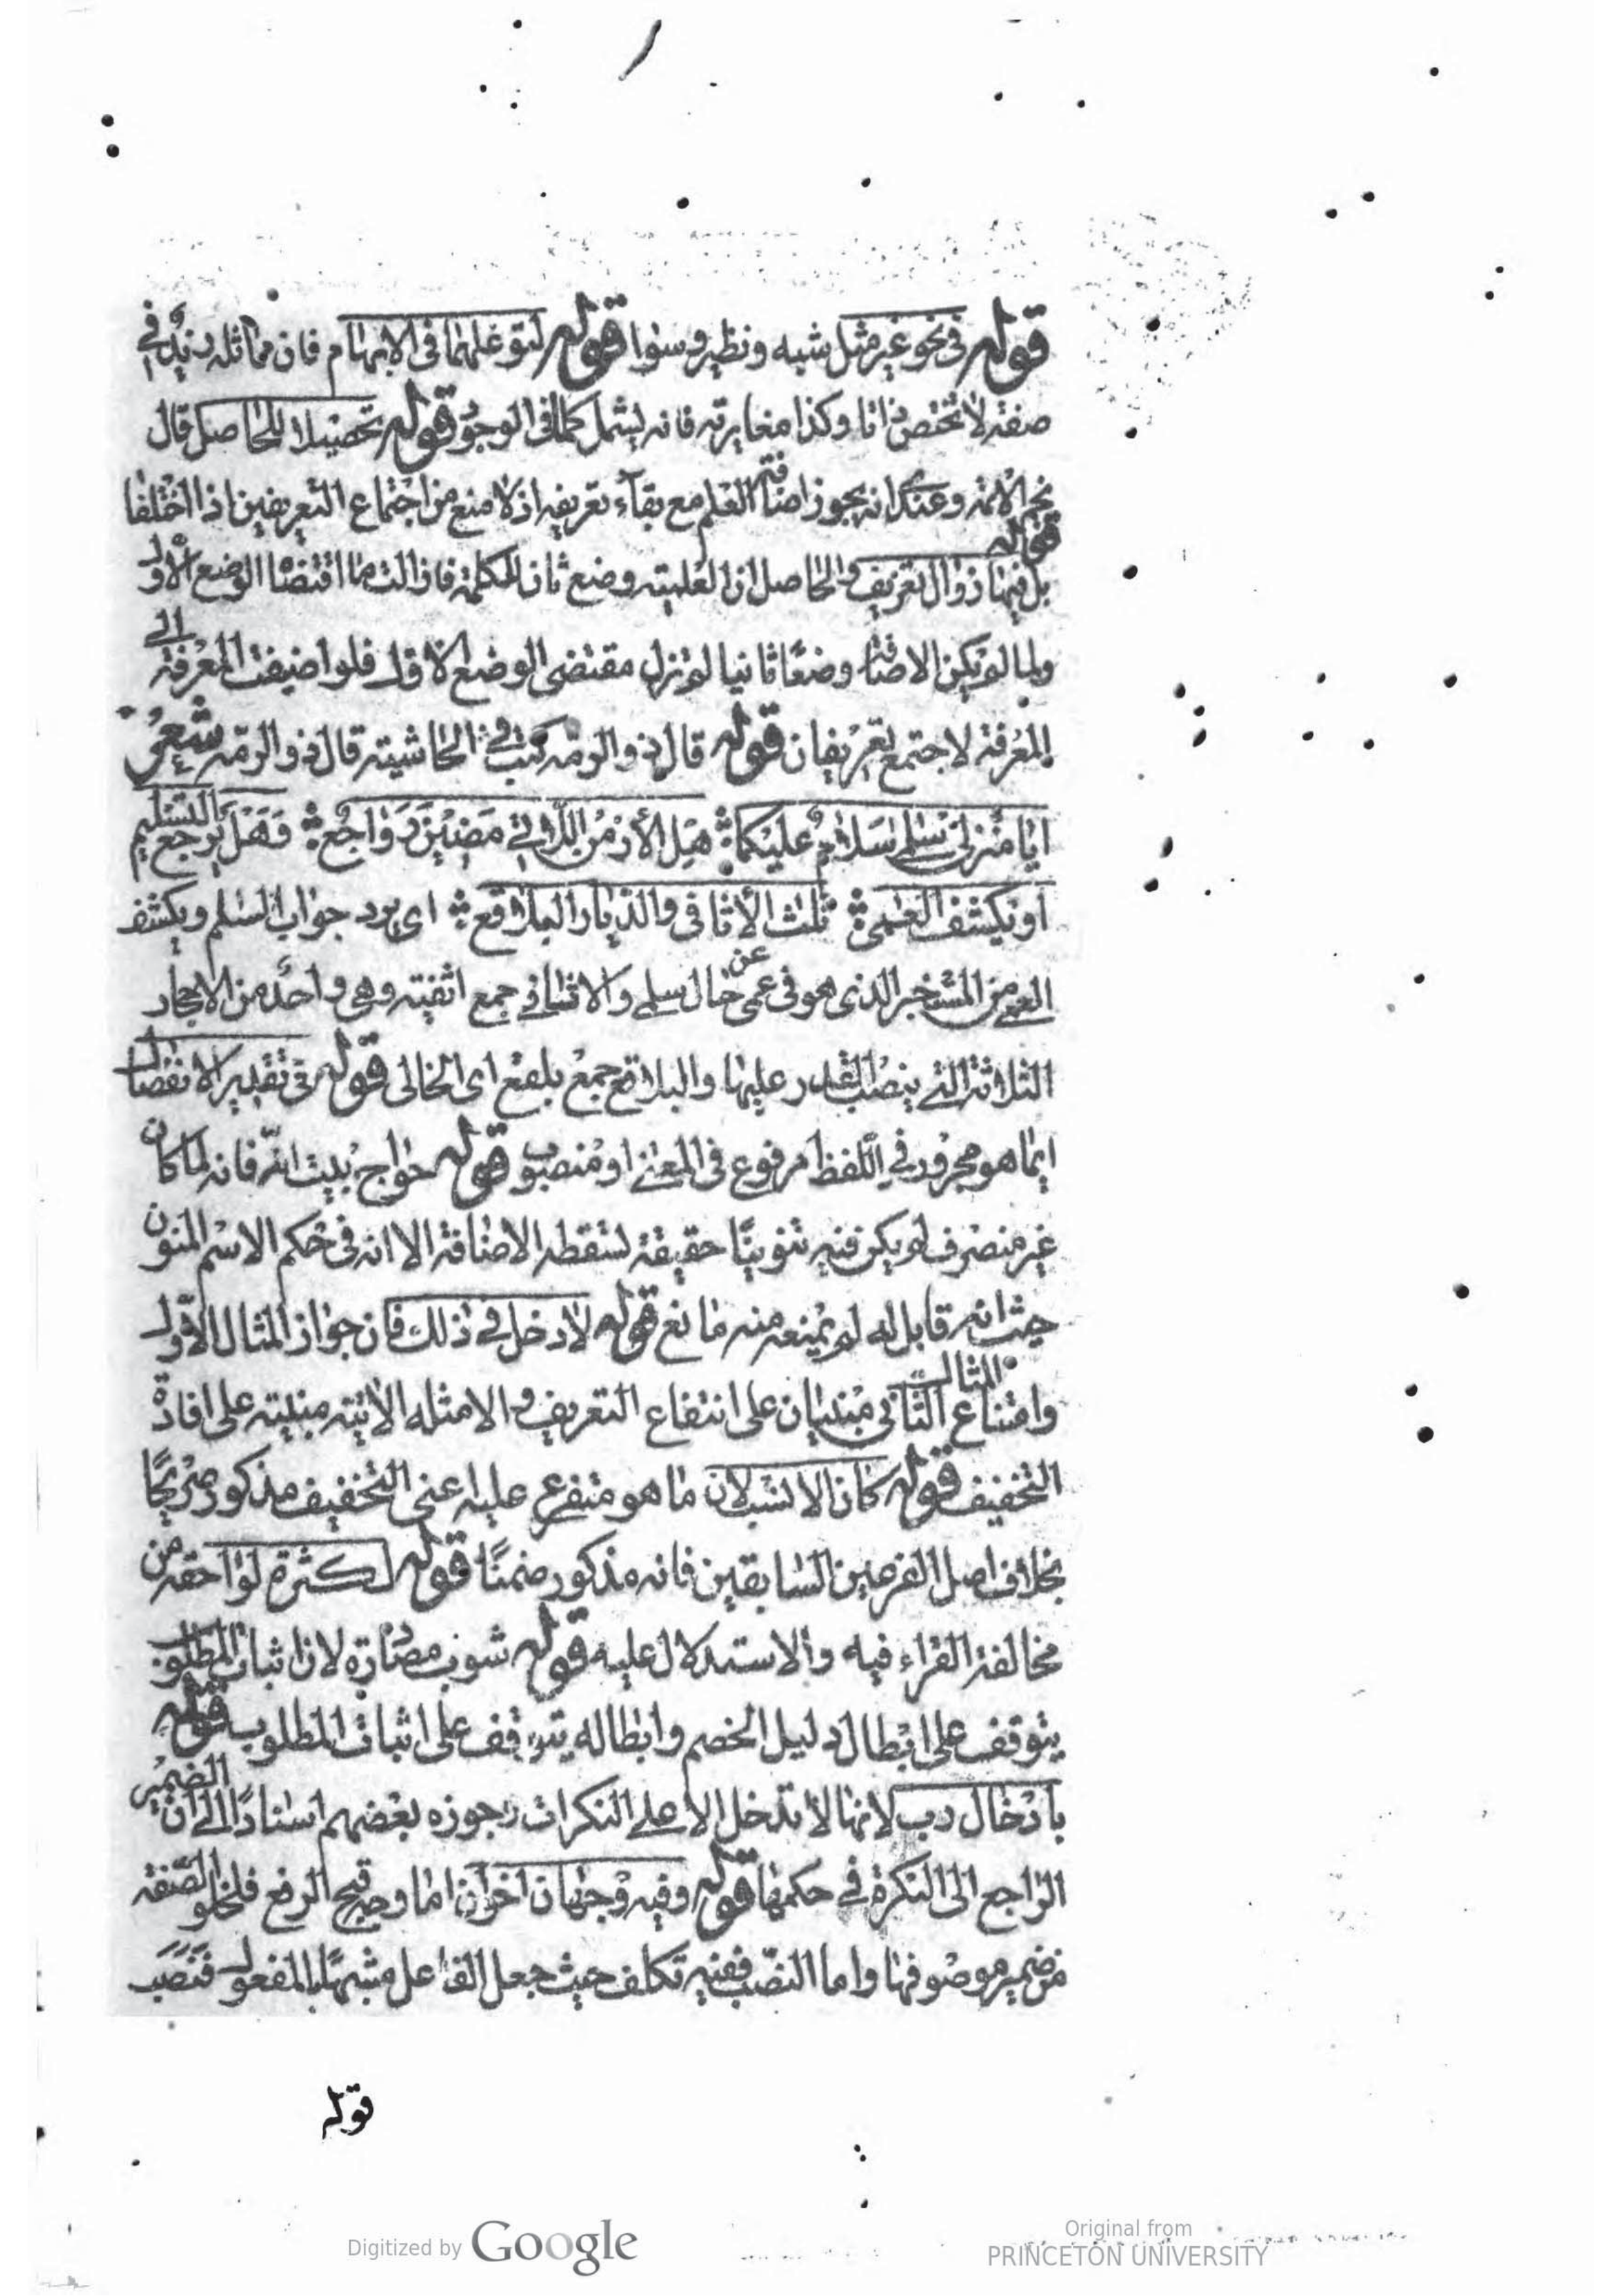 قوله في نحو غير مثل شبه ونظير وسوا قوله لتوغلهما في الابهام فان مماثلة زيد في
صفة لا تختص ذاتا وكذا مغايرته فانه يشمل كلما في الوجود قوله تحصيلا للحاصل قال
نجم الائمة وعندي انه يجوز اضافة العلم مع بقاء تعريفه اذ لا منع من اجتماع التعريفين اذا اختلفا قوله
بل فيها زوال تعريف والحاصل ان العلمية وضع ثان للكلمة فازالت ما اقتضاه الوضع الاول
ولما لم يكن الاضافة وضعا ثانيا لم تزل مقتضى الوضع الاول فلو اضيفت المعرفة الى
المعرفة لاجتمع تعريفان قوله قال ذو الرمة كتب في الحاشية قال ذو الرمة شعر
ايا منزلي سلمى سلام عليكما هل الأزمن اللاتي مضين رواجع فهل يرجع التسليم
او يكشف العمى ثلث الأثافي والديار البلاقع اي يرد جواب السلم ويكشف
العمى من المستخبر الذي هو في عمى عن حال سلمى والاثافي جمع اثفية وهي واحدة من الاحجار
الثلاثة التي ينصب القدر عليها والبلاقع جمع بلقع اي الخالي قوله في تقدير الانفصال
انما هو مجرور في اللفظ مرفوع في المعنى او منصوب قوله حواج بيت الله فانه لما كان
غير منصرف لم يكن فيه تنوينا حقيقة لتسقطه الاضافة الا انه في حكم الاسم المنون
حيث انه قابل له لم يمنعه منه مانع قوله لا دخل في ذلك فان جواز المثال الاول
وامتناع المثال الثاني مبنيان على انتفاع التعريف والامثلة الاتية مبنية على افادة
التخفيف قوله كان الانسب لان ما هو متفرع عليه اعني التخفيف مذكور صريحا
بخلاف اصل الفرعين السابقين فانه مذكور ضمنا قوله لكثرة لواحقه من
مخالفة الفراء فيه والاستدلال عليه قوله شوب مصادرة لان اثبات المطلوب
يتوقف على ابطال دليل الخصم وابطاله يتوقف على اثبات المطلوب قوله
بادخال رب لانها لا تدخل الا على النكرات وجوزه بعضهم اسنادا الى ان الضمير
الراجع الى النكرة في حكمها قوله وفيه وجهان اخران اما وجه قبح الرفع فلخلو الصفة
من ضمير موصوفها واما النصب ففيه تكلف حيث جعل الفاعل مشبها بالمفعول فنصب
قوله
Digitized by Google
Original from
PRINCETON UNIVERSITY